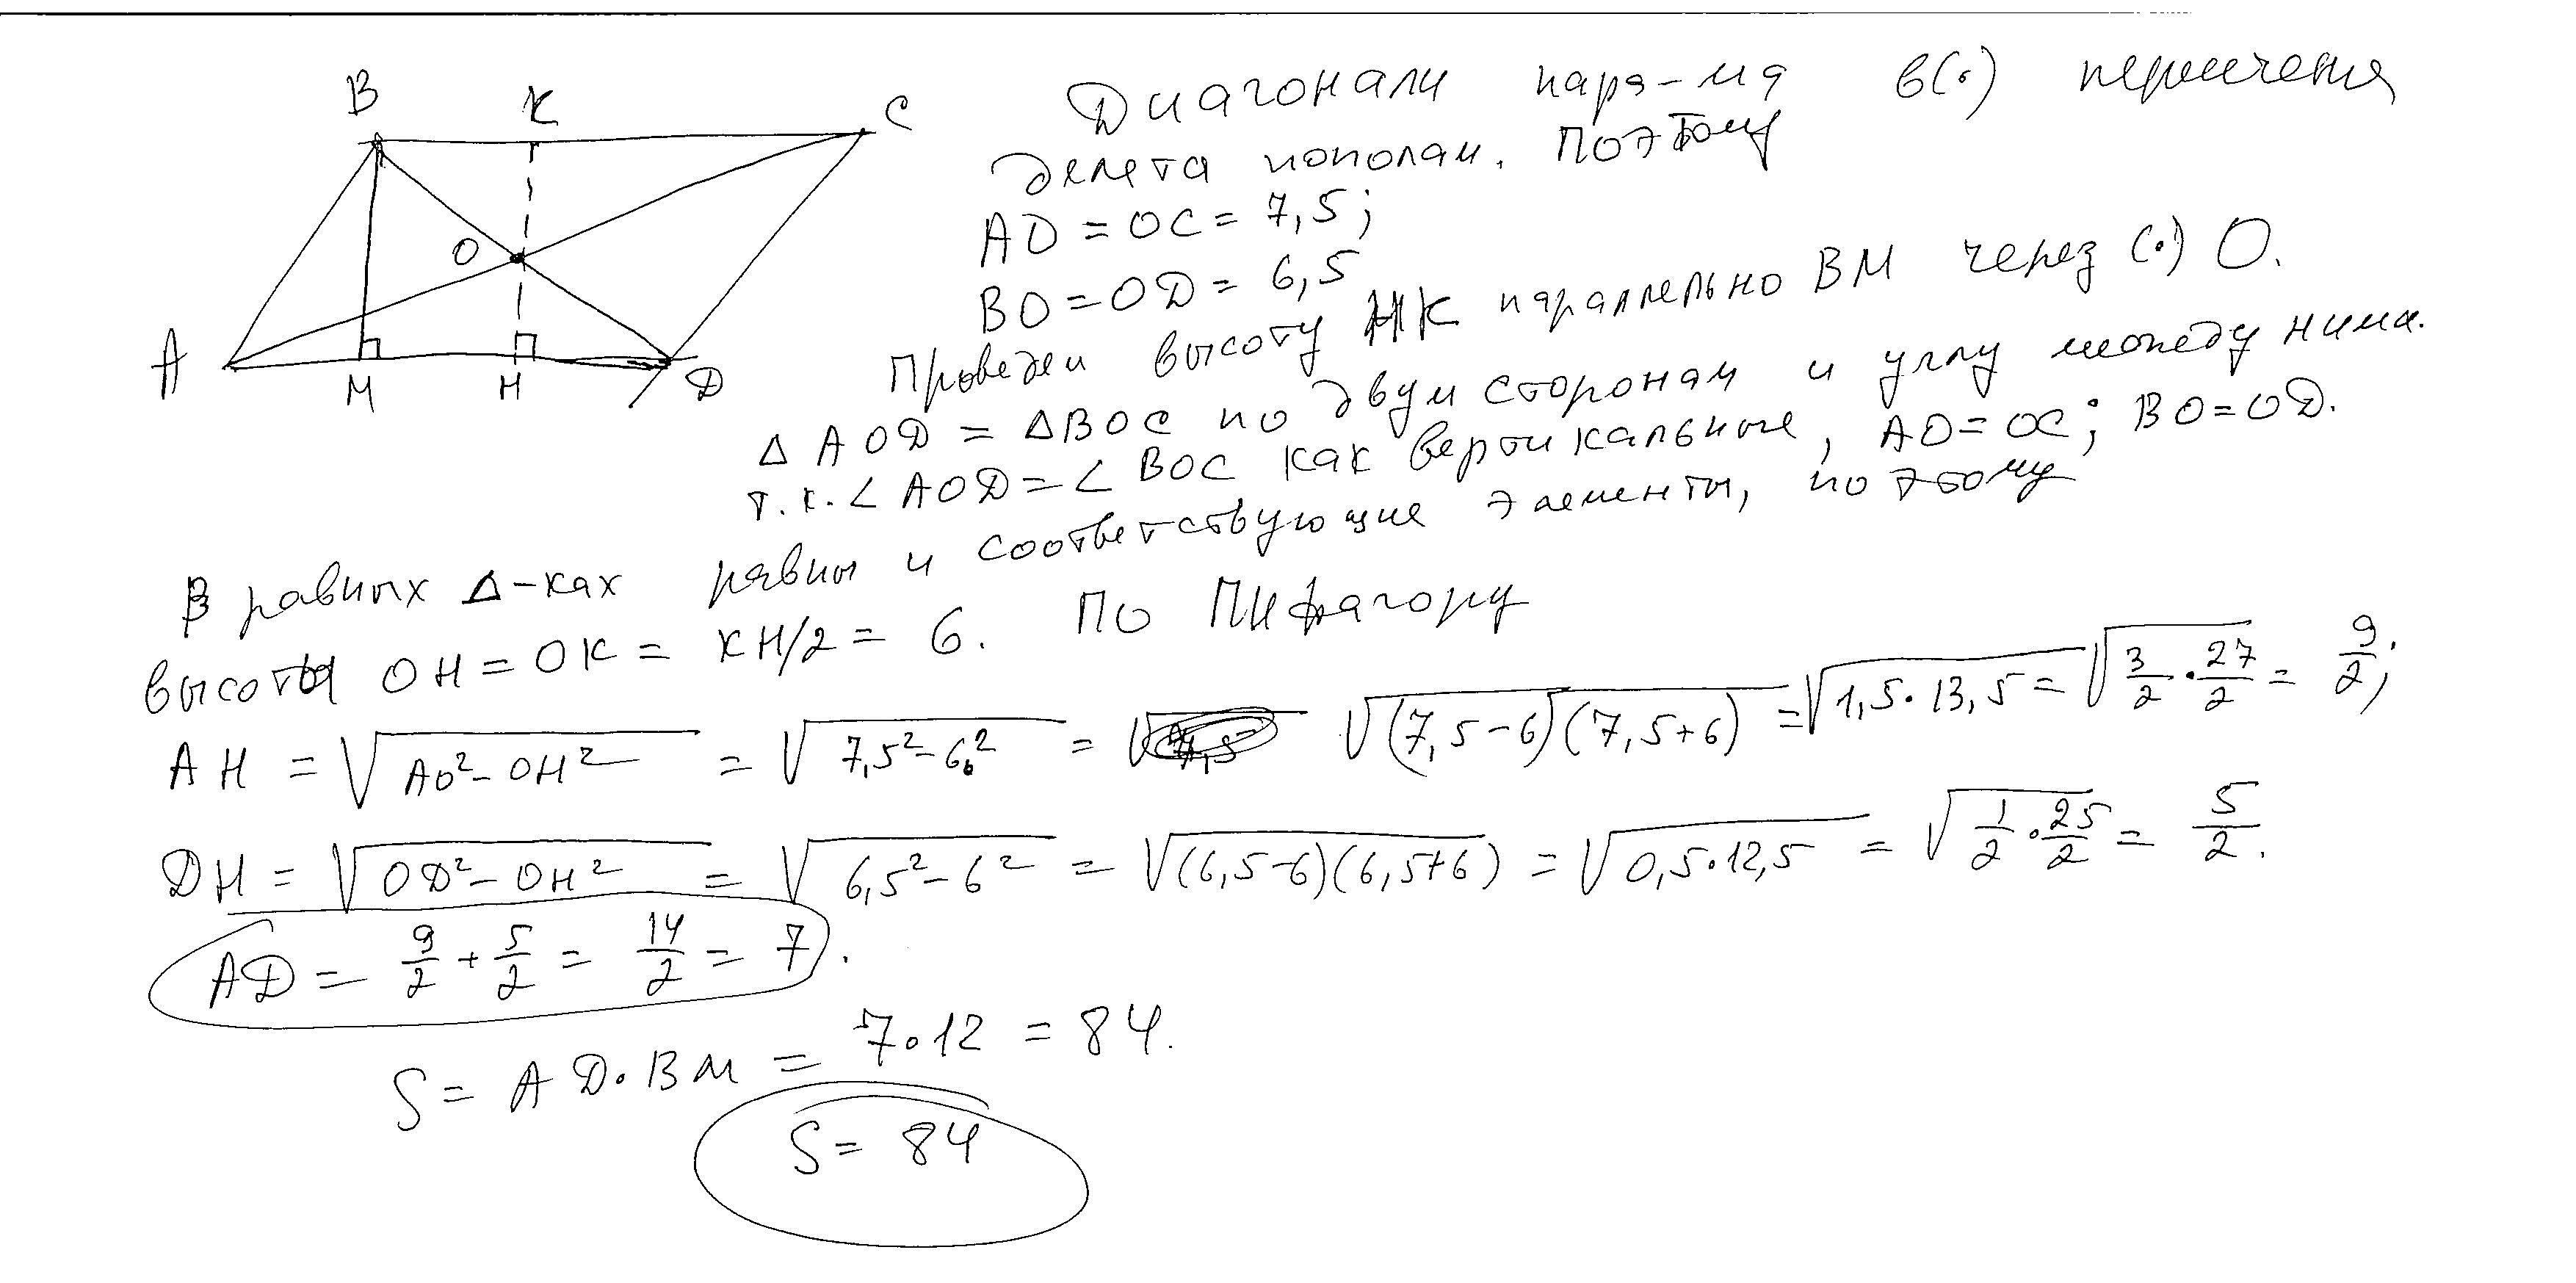 B K C
O
A M H D
Диагонали пара-ма в(·) пересечения
делетя пополам. Поэтому
AO = OC = 7,5;
BO = OD = 6,5
Проведем высоту HK параллельно BM через (·) O.
Δ AOD = Δ BOC по двум сторонам и углу между ними.
т.к. ∠ AOD = ∠ BOC как вертикальные, AO = OC; BO = OD.
В равных Δ-ках равны и соответствующие элементы, поэтому
высоты OH = OK = KH/2 = 6. По Пифагору
AH = √(AO² - OH²) = √(7,5² - 6²) = √((7,5-6)(7,5+6)) = √(1,5·13,5) = √(3/2·27/2) = 9/2;
DH = √(OD² - OH²) = √(6,5² - 6²) = √((6,5-6)(6,5+6)) = √(0,5·12,5) = √(1/2·25/2) = 5/2.
AD = 9/2 + 5/2 = 14/2 = 7.
S = AD·BM = 7·12 = 84.
S = 84